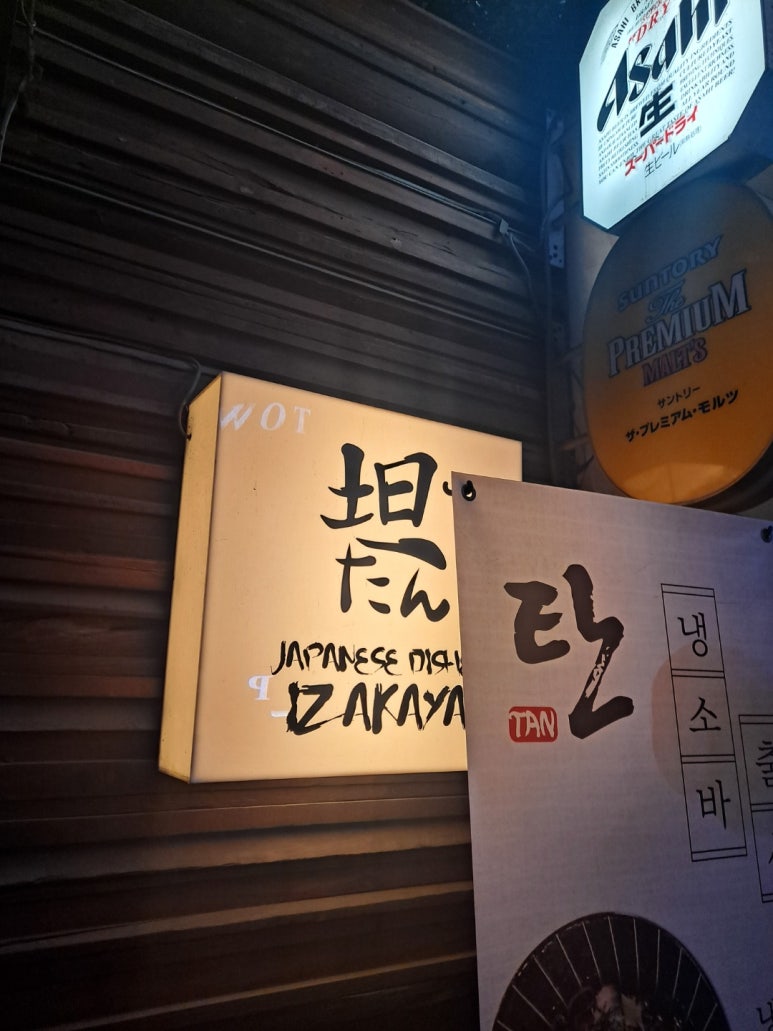 "DRY"
Asahi
生
スーパードライ
生ビール
SUNTORY
The
PREMIUM
MALT'S
サントリー
ザ・プレミアム・モルツ
坦
たん
JAPANESE
IZAKAYA
탄
TAN
냉소바
출시